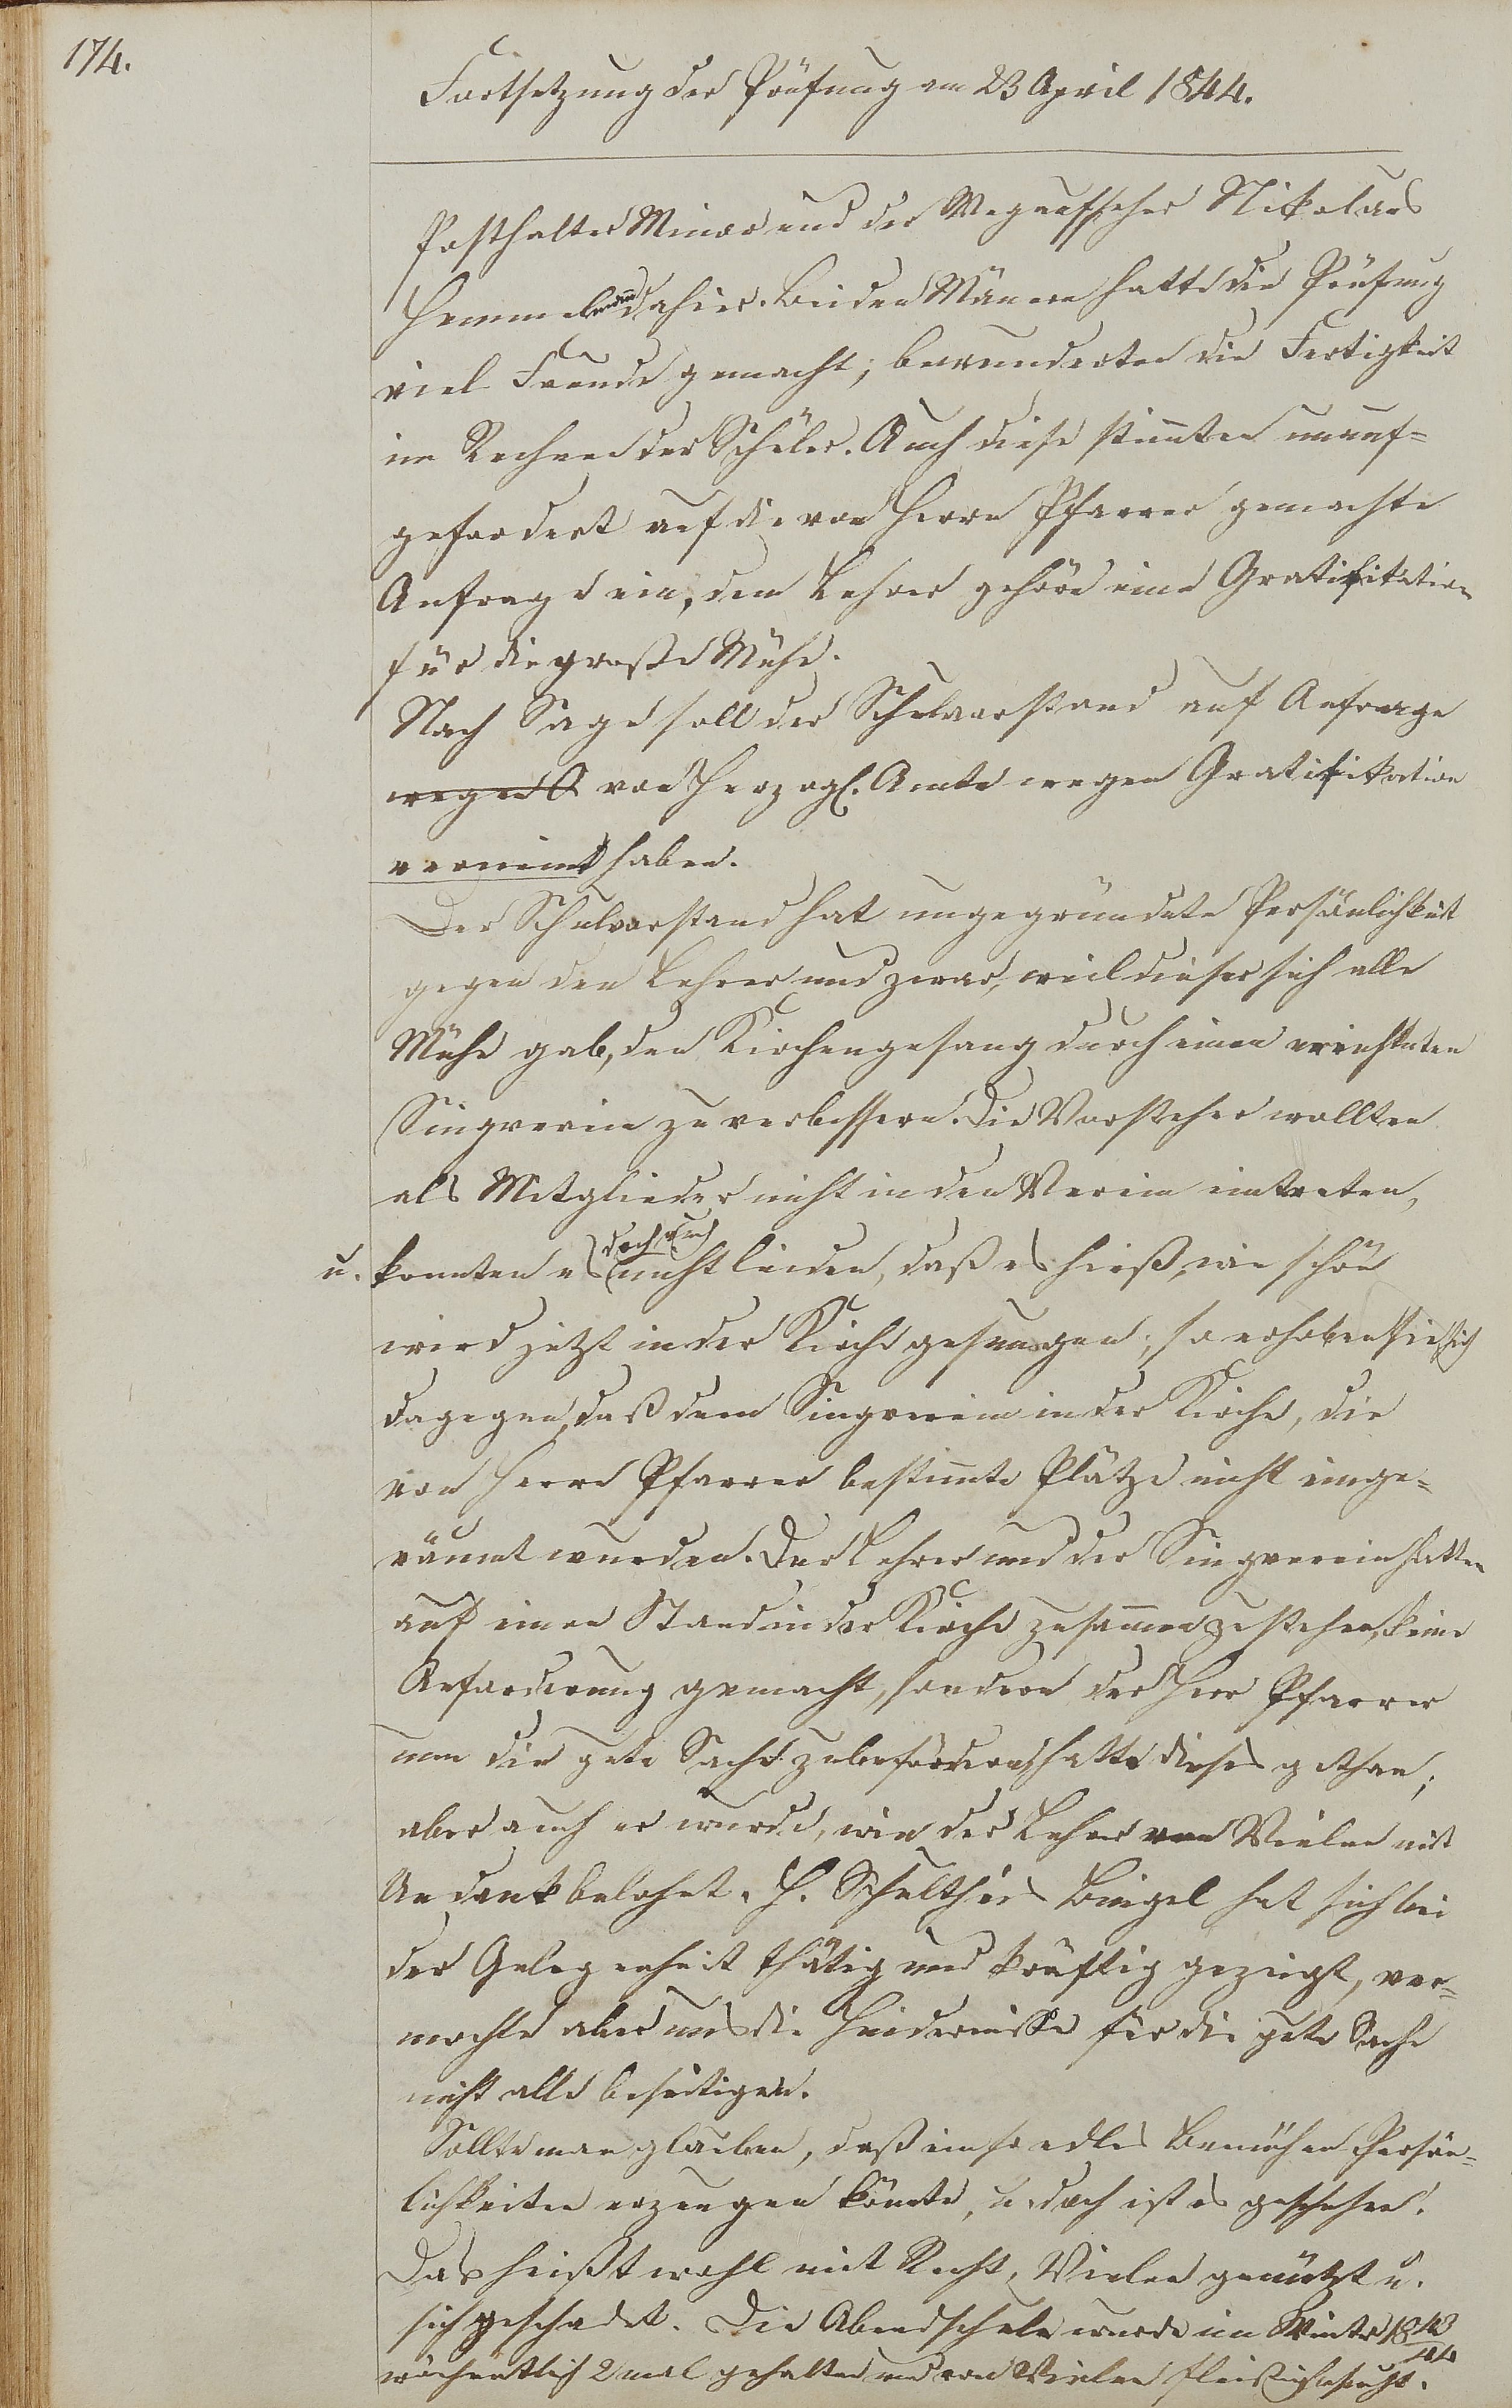 174.
Fortsetzung der Prüfung am 23 April 1844.
Posthalter Minor und der Wegaufseher Nikolaus
Hemmel dahier. Beiden Männern hatte die Prüfung
viel Freude gemacht; bewunderten die Fertigkeit
im Rechnen der Schüler. Auch diese stimten unauf-
gefordert auf die von Herrn Pfarrer gemachte
Anfrage ein, dem Lehrer gehöre eine Gratifikation
für die große Mühe.
Nach Sage soll der Schulvorstand auf Anfrage
wegen von Herzogl. Amte wegen Gratifikation
verneint haben.
Der Schulvorstand hat ungegründete Persönlichkeit
gegen den Lehrer und zwar, weil dieser sich alle
Mühe gab, den Kirchengesang durch einen errichteten
Singverein zu verbessern. Die Vorsteher wollten
als Mitglieder nicht in den Verein eintreten,
u. konnten es doch auch nicht leiden, daß es hieß, wie schön
wird jetzt in der Kirche gesungen; so erhoben sie sich
dagegen, daß dem Singverein in der Kirche, die
von Herrn Pfarrer bestimte Plätze nicht einge-
räumt wurden. Der Lehrer und der Singverein hatten
auf einen Stand in der Kirche zusammen zu stehen, keine
Anforderung gemacht, sondern der Herr Pfarrer
um die gute Sache zu befördern hatte dieses gethan;
aber auch er wurde, wie der Lehrer von Vielen mit
Undank belohnt. H. Schultheis Bingel hat sich bei
der Gelegenheit thätig und kräftig gezeigt, ver-
mochte aber uns die Hindernisse für die gute Sache
nicht alle beseitigen.
Sollte man glauben, daß ein so edles Bemühen Persön-
lichkeiten erzeugen könnte, u. doch ist es geschehen.
Das heißt wohl mit Recht, Vielen genützt u.
sich geschadet. Die Abendschule wurde im Winter 1843/44
wöchentlich 2 mal gehalten und von Vielen fleißig besucht.